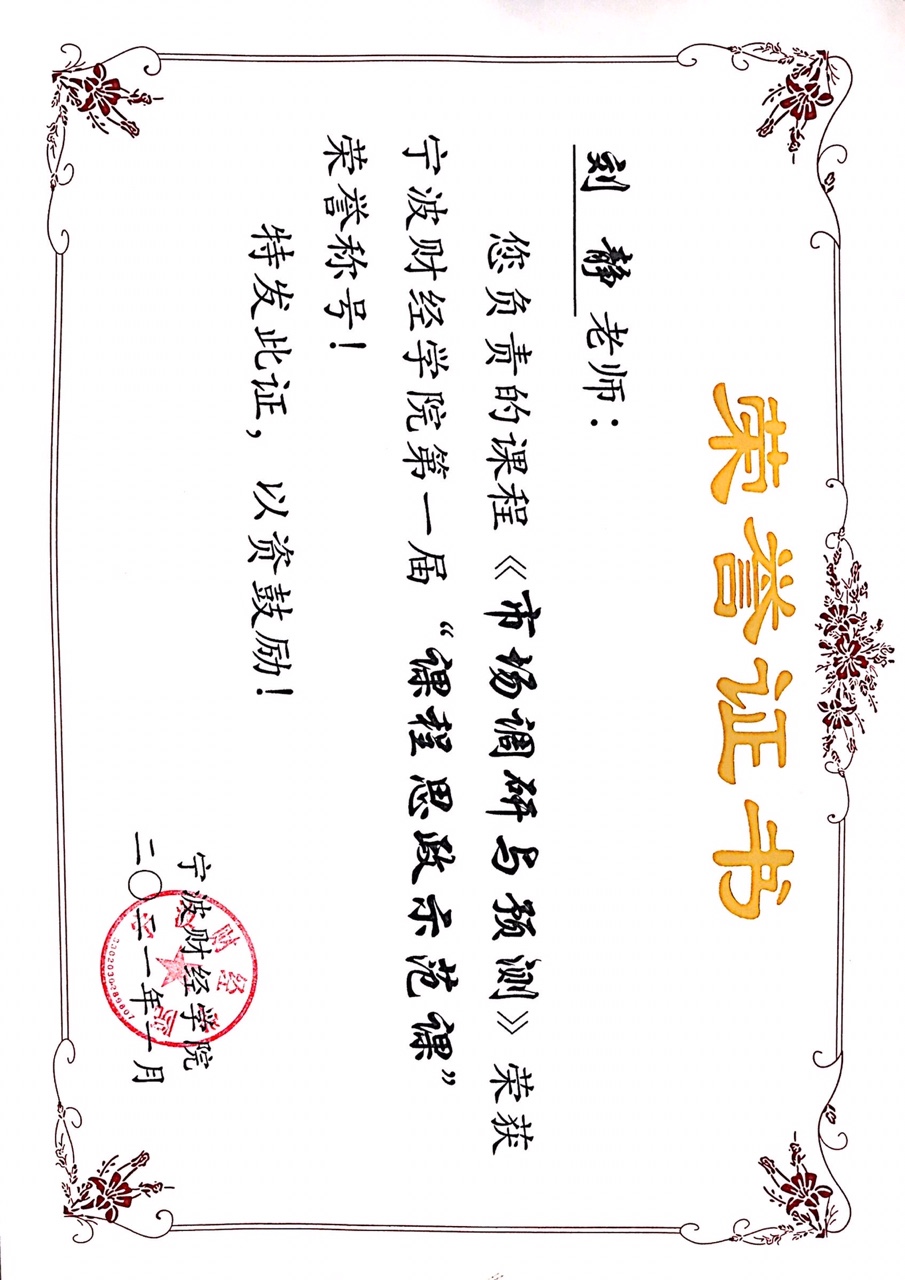 荣誉证书
刘 静老师：
您负责的课程《市场调研与预测》荣获
宁波财经学院第一届“课程思政示范课”
荣誉称号！
特发此证，以资鼓励！
宁波财经学院
二〇二一年一月